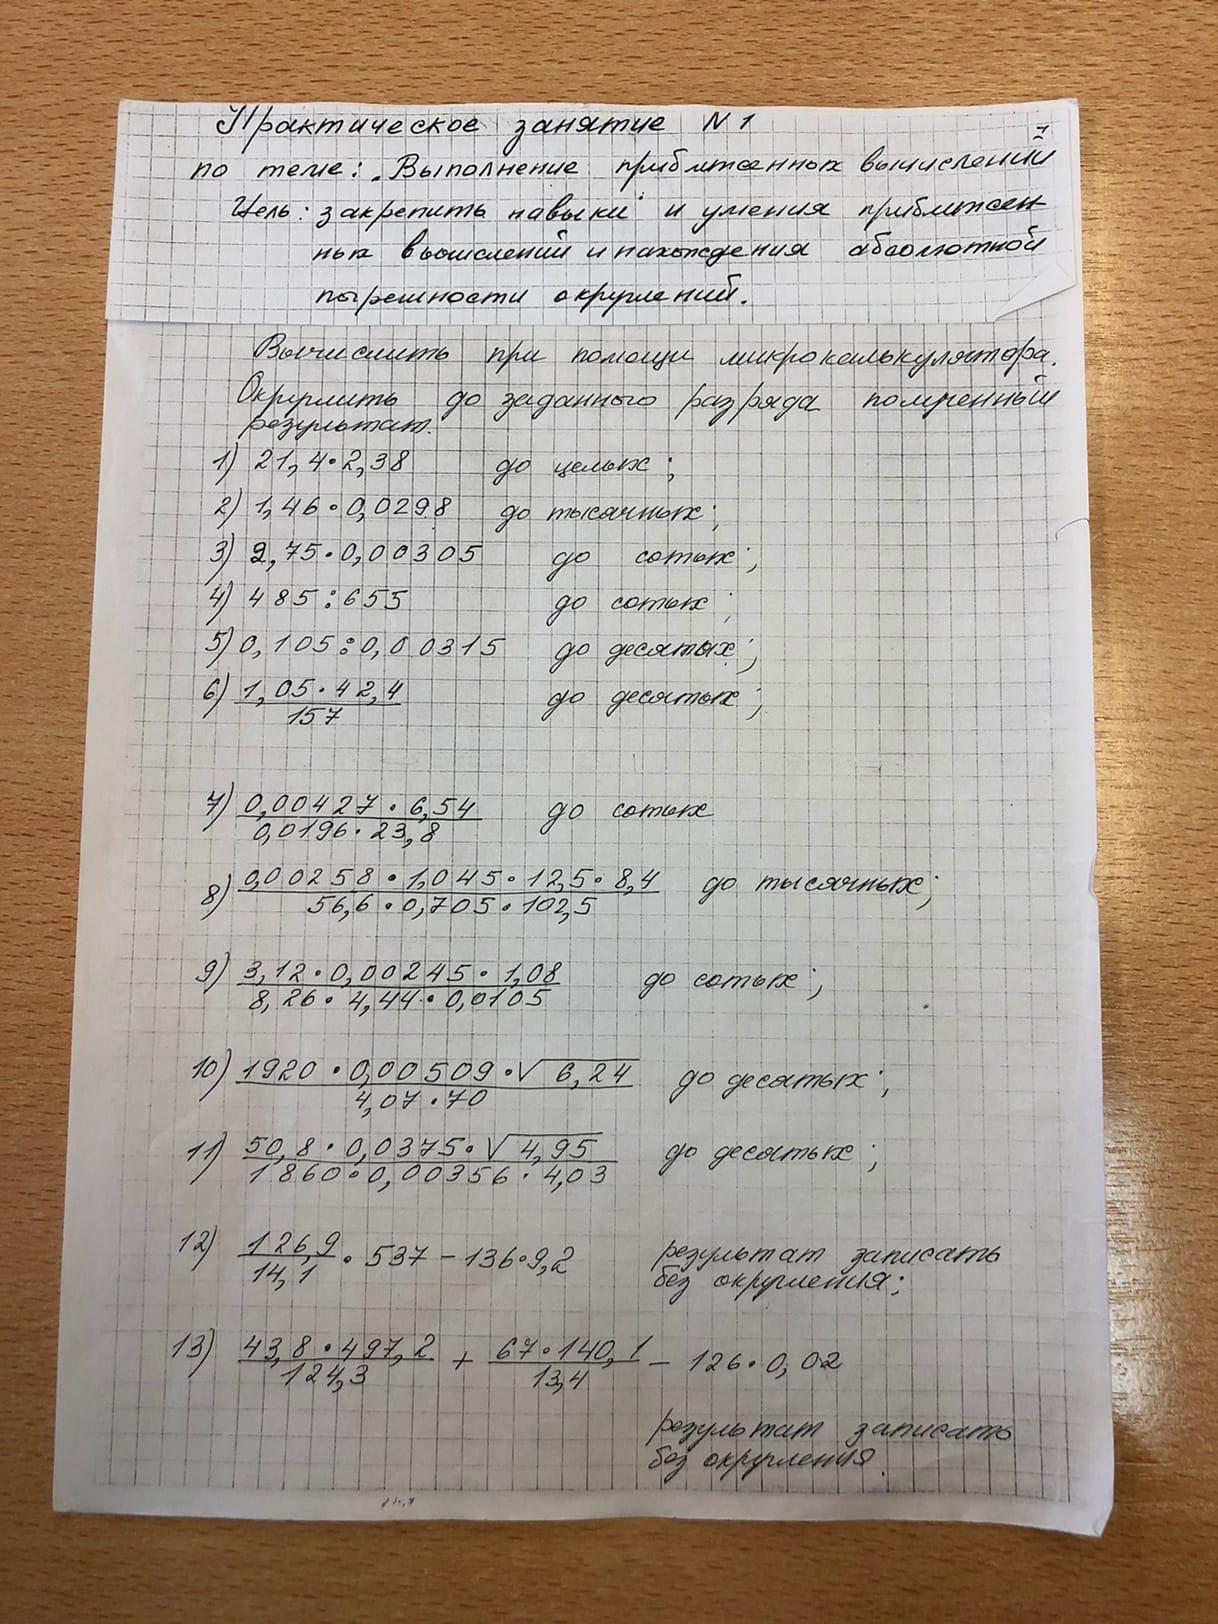 Практическое занятие N 1
1
по теме: „Выполнение приближенных вычислений
Цель: закрепить навыки и умения приближен-
ных вычислений и нахождения абсолютной
погрешности округлений.
Вычислить при помощи микрокалькулятора.
Округлить до заданного разряда полученный
результат.
1) 21,4·2,38 до целых;
2) 1,46·0,0298 до тысячных;
3) 2,75·0,00305 до сотых;
4) 485:655 до сотых;
5) 0,105:0,00315 до десятых;
6) 1,05·42,4 до десятых;
157
7) 0,00427·6,54 до сотых
0,0196·23,8
8) 0,00258·1,045·12,5·8,4 до тысячных;
56,6·0,705·102,5
9) 3,12·0,00245·1,08 до сотых;
8,26·4,44·0,0105
10) 1920·0,00509·√6,24 до десятых;
4,07·70
11) 50,8·0,0375·√4,95 до десятых;
1860·0,00356·4,03
12) 126,9 · 537 - 136·9,2 результат записать
14,1 без округления;
13) 43,8·497,2 + 67·140,1 - 126·0,02
124,3 13,4
результат записать
без округления.